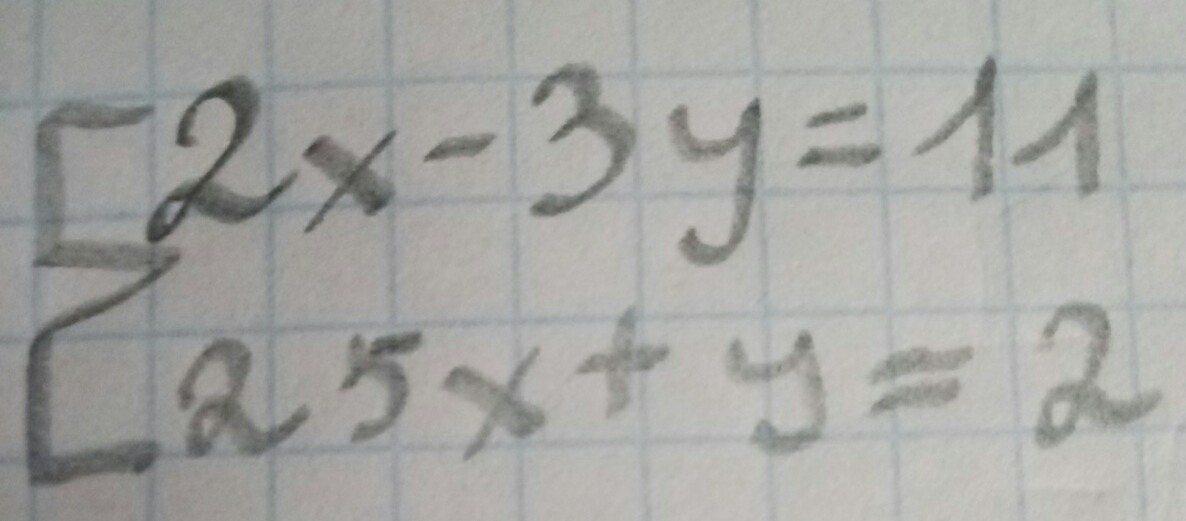 2x-3y=11
25x+y=2